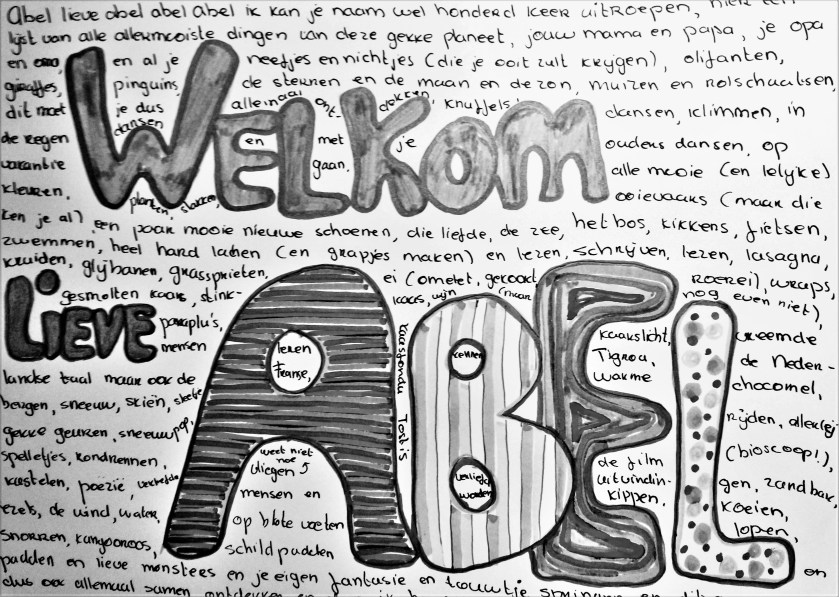 Abel lieve abel abel Abel ik kan je naam wel honderd keer uitroepen,
lijst van alle allermooiste dingen van deze gekke planeet, jouw mama en papa, je opa
en oma, en al je neefjes en nichtjes (die je ooit zult krijgen), olifanten,
giraffes, pinguins, de sterren en de maan en de zon, muizen en rolschaatsen,
dit moet je dus allemaal ont- dekken, knuffels, dansen, klimmen, in
de regen dansen en met je ouders dansen, op
vakantie gaan, alle mooie (en lelijke)
kleuren, planten, slakken, ooievaars (maar die
ken je al), een paar mooie nieuwe schoenen, die liefde, de zee, het bos, kikkers, fietsen,
zwemmen, heel hard lachen (en grapjes maken) en lezen, schrijven, lezen, lasagna,
kruiden, glijbanen, grassprieten, ei (omelet, gekookt, roerei), wraps,
gesmolten kaas, stink- kaas, wijn (maar nog even niet),
WELKOM
LIEVE
ABEL
paraplu's, kaarslicht, vreemde
mensen leren Franse, kennen, Tigroa, de Neder-
landse taal maar ook de warme chocomel,
bergen, sneeuw, skiën,
gekke geuren, sneeuwpop, rijden, allerlei
spelletjes, weet niet hoe vliegen de film (bioscoop!),
kastelen, poëzie, verliefde mensen en verliefd worden uitvindin- gen, zandbak,
ezels, de wind, water, op blote voeten kippen, koeien,
snorren, kangoeroes, schildpadden lopen,
padden en lieve monsters en je eigen fantasie en touwtje springen en
dus ook allemaal samen ontdekken en